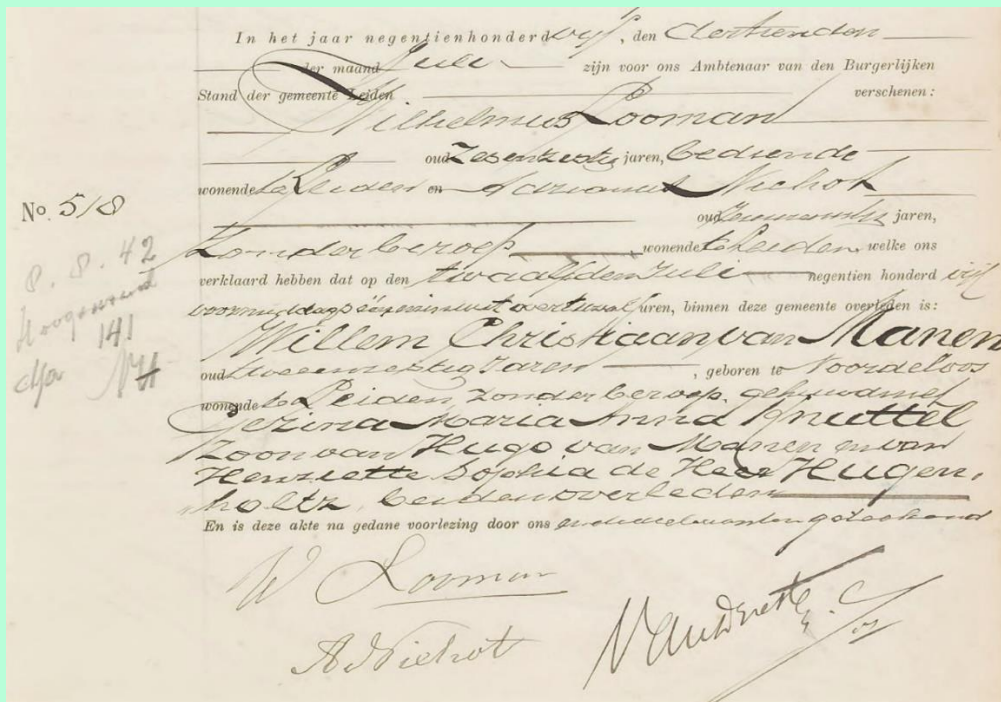 In het jaar negentienhonderd vijf, den dertienden
der maand Juli zijn voor ons Ambtenaar van den Burgerlijken
Stand der gemeente Leiden verschenen:
Wilhelmus Looman
oud zesenzestig jaren, bediende
wonende te Leiden en Adrianus Niehot
No. 518
oud jaren,
zonder beroep wonende te Leiden, welke ons
8. 8. 42
verklaard hebben dat op den twaalfden Juli negentien honderd vijf
Hoogewoerd
voormiddags één minuut over twaalf uren, binnen deze gemeente overleden is:
141
Willem Christiaan van Manen
oud jaren, geboren te Noordeloos
wonende te Leiden, zonder beroep, gehuwd met
Gezina Maria Anna Knuttel
Zoon van Hugo van Manen en van
Henriette Sophia de Heer Hugen-
holtz, beiden overleden
En is deze akte na gedane voorlezing door ons en de declaranten geteekend
W Looman
A. Niehot